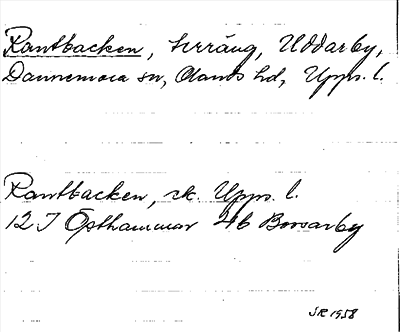 Rantbacken, terräng, Uddarby,
Dannemora sn, Olands hd, Upps. l.
Rantbacken, ek. Upps. l.
12 I Östhammar 4b Borsarby
SR 1958